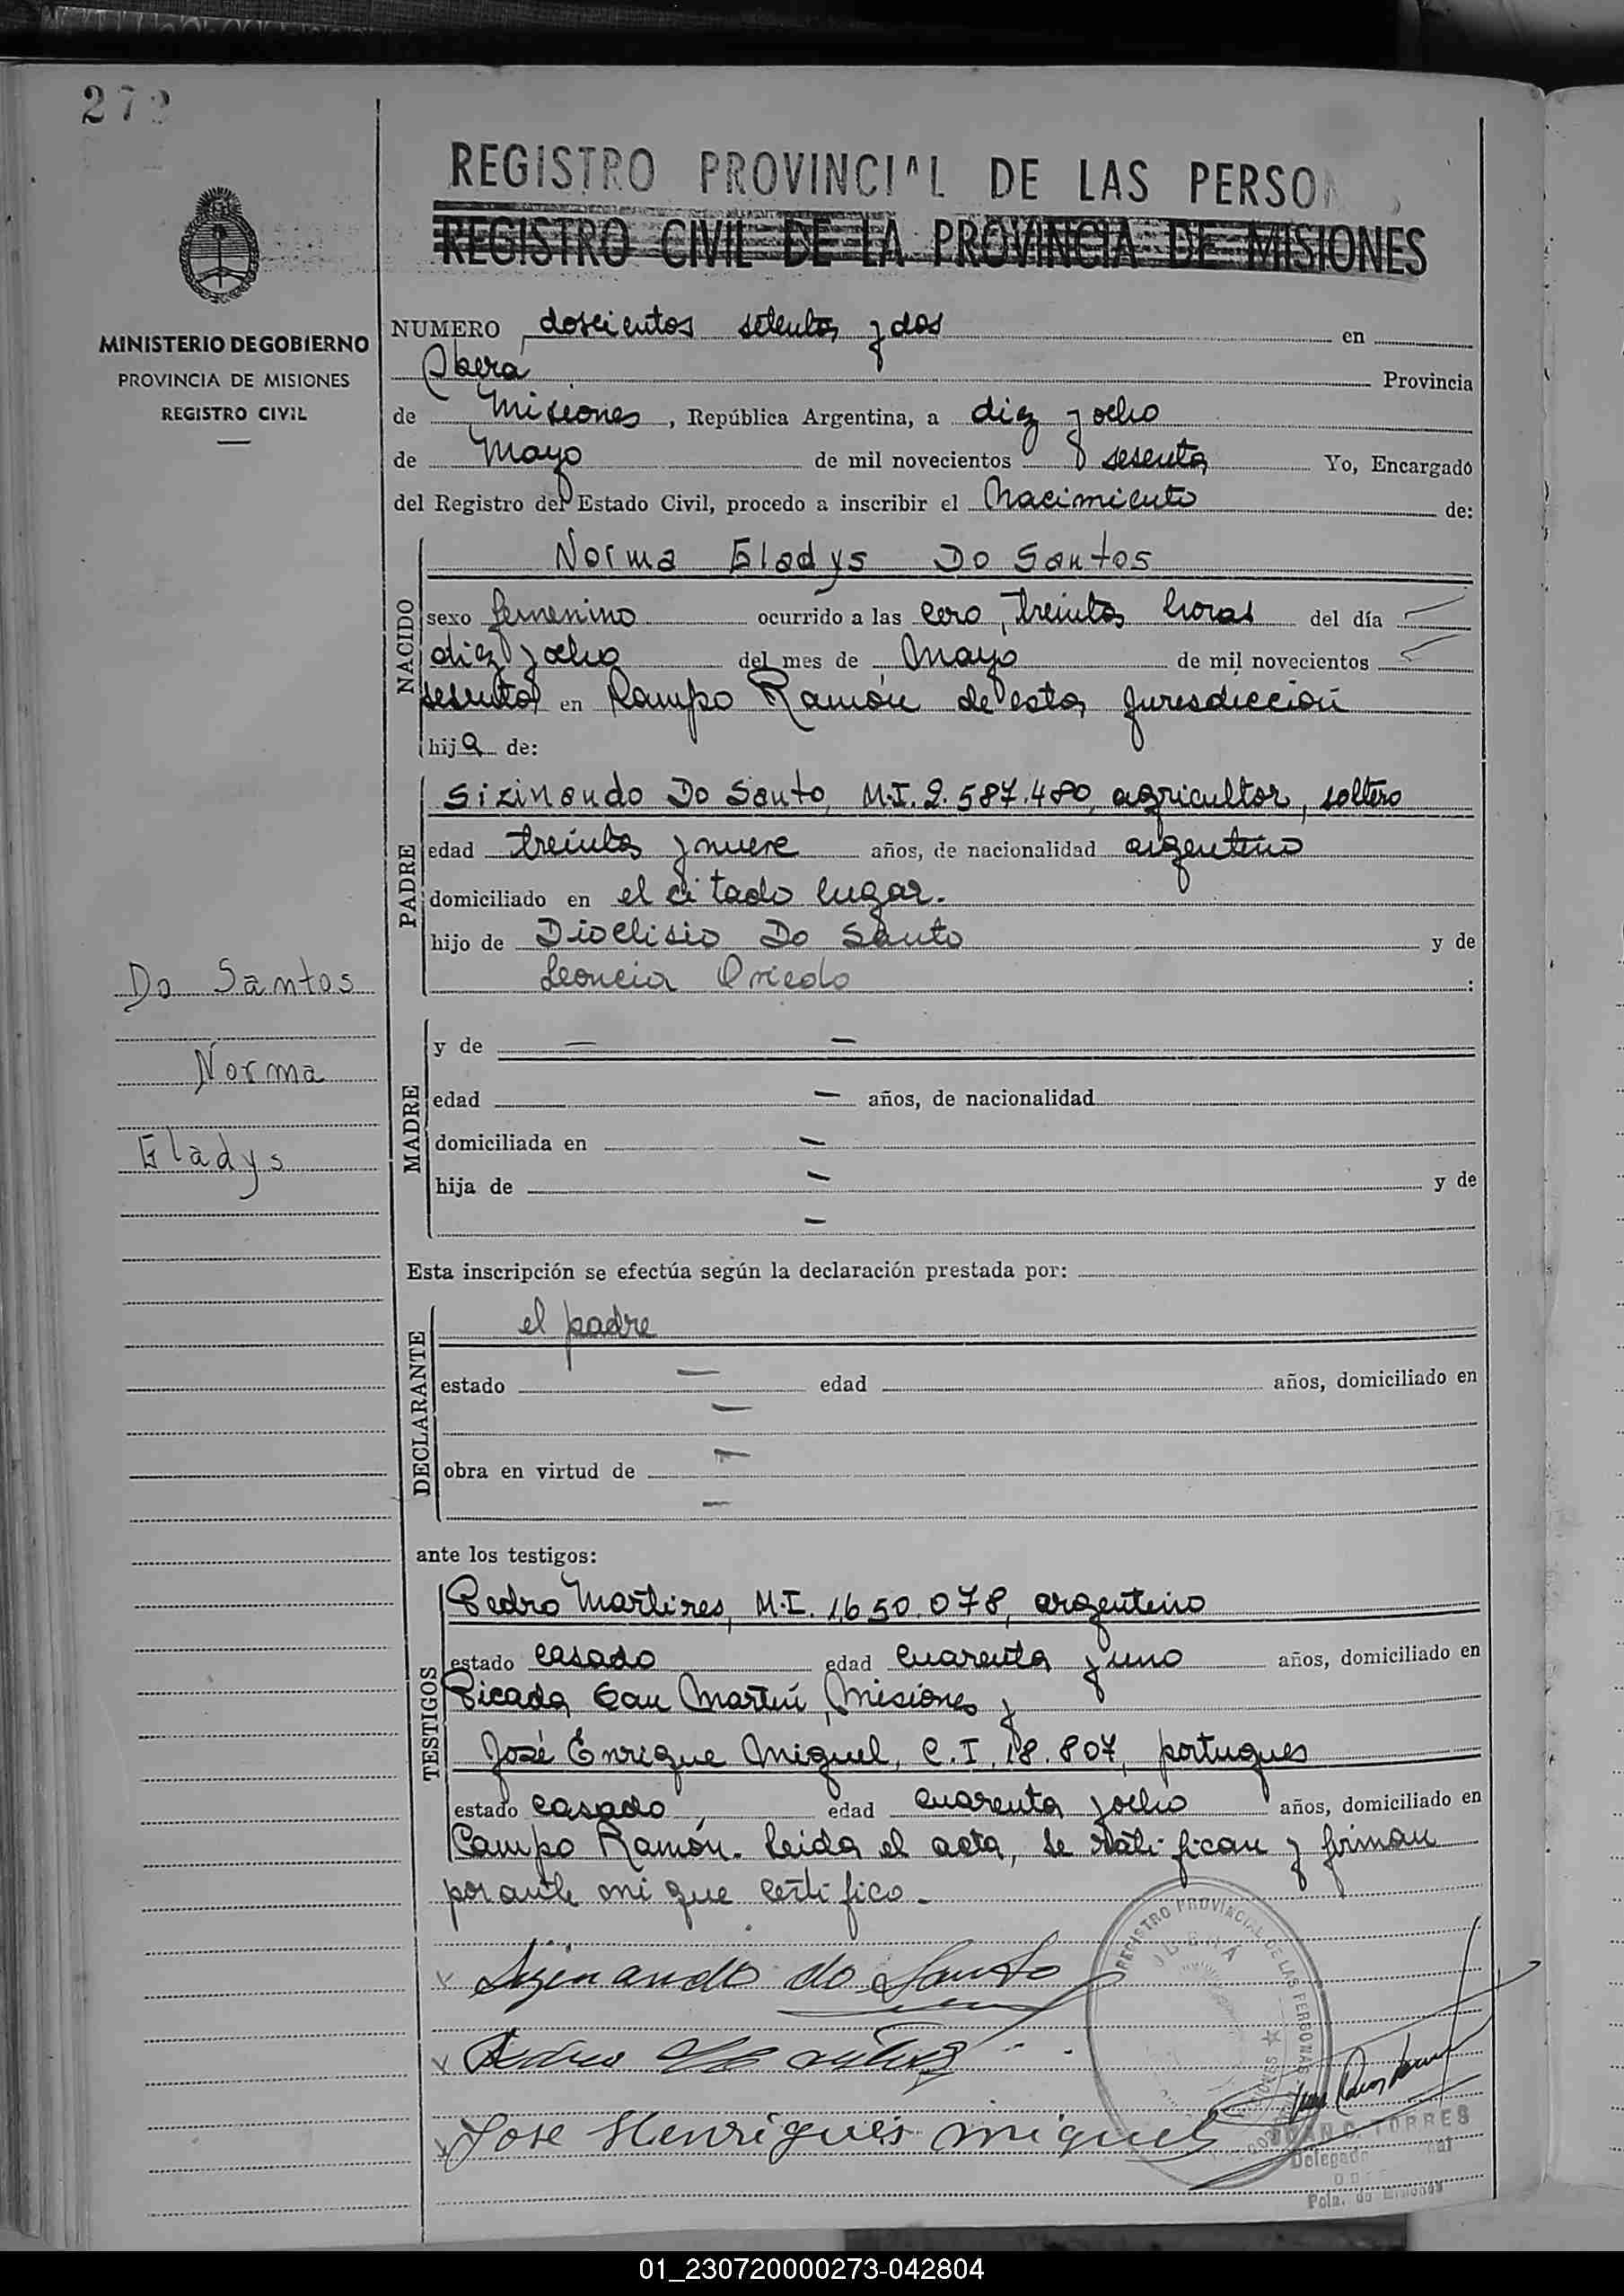 272
REGISTRO PROVINCIAL DE LAS PERSO
REGISTRO CIVIL DE LA PROVINCIA DE MISIONES
MINISTERIO DE GOBIERNO
PROVINCIA DE MISIONES
REGISTRO CIVIL
NUMERO doscientos setenta y dos en
Oberá Provincia
de Misiones, República Argentina, a diez y ocho
de Mayo de mil novecientos sesenta Yo, Encargado
del Registro del Estado Civil, procedo a inscribir el Nacimiento de:
NACIDO
Norma Gladys Do Santos
sexo femenino ocurrido a las cero, treinta horas del día
diez y ocho del mes de Mayo de mil novecientos
sesenta en Campo Ramón de esta Jurisdicción
hija de:
PADRE
Sizinando Do Santo, M.I. 2.587.480, agricultor, soltero
edad treinta y nueve años, de nacionalidad argentino
domiciliado en el citado lugar.
hijo de Dioclisio Do Santo y de
Leoncia Oviedo :
Do Santos
Norma
Gladys
MADRE
y de — —
edad — años, de nacionalidad
domiciliada en —
hija de — y de
—
Esta inscripción se efectúa según la declaración prestada por:
DECLARANTE
el padre
estado — edad años, domiciliado en
—
obra en virtud de —
—
ante los testigos:
TESTIGOS
Pedro Martires, M.I. 1650.078, argentino
estado casado edad cuarenta y uno años, domiciliado en
Picada San Martín, Misiones y
José Enrique Miguel, C.I. 18.807, portugues
estado casado, edad cuarenta y ocho años, domiciliado en
Campo Ramón. Leida el acta, se ratifican y firman
por ante mi que certifico.-
x Sizinando do Santo
x Pedro Martires
x Jose Henrigues miguel
REGISTRO PROVINCIAL DE LAS PERSONAS
OBERÁ
MISIONES
JUAN C. TORRES
Delegado
Pcia. de Misiones
01_230720000273-042804